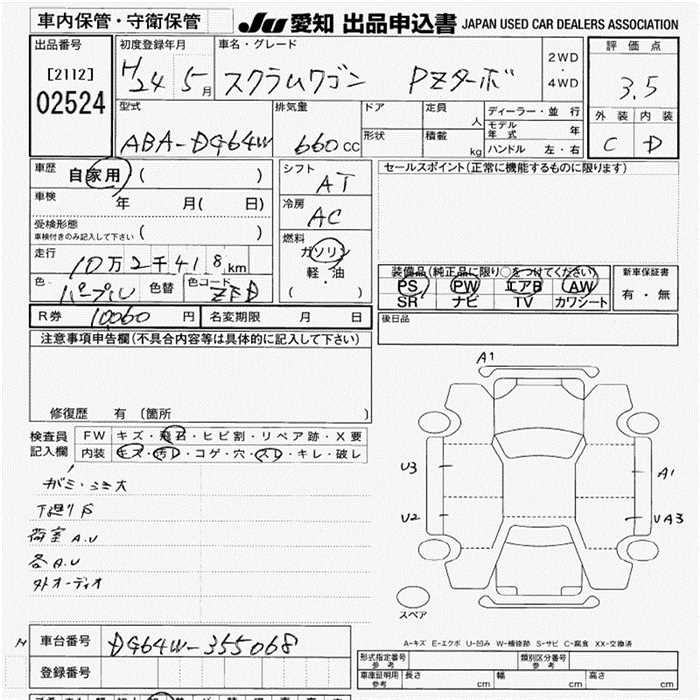 車内保管・守衛保管
JU 愛知 出品申込書 JAPAN USED CAR DEALERS ASSOCIATION
出品番号
[2112]
02524
初度登録年月
H24 5月
車名・グレード
スクラムワゴン PZターボ
2WD
・
4WD
評価点
3.5
外装 内装
C D
型式
ABA-DG64W
排気量
660cc
ドア
形状
定員
人
積載
kg
ディーラー・並行
モデル年式 年
ハンドル 左・右
車歴
自家用 ( )
車検
年 月( 日)
受検形態
車検付きのみ記入して下さい ( )
走行
10万2千418km
色
パープル
色替
色コード
ZFD
シフト
AT
冷房
AC
燃料
ガソリン
・
軽・油
( )
セールスポイント(正常に機能するものに限ります)
装備品(純正品に限り○をつけてください)
PS PW エアB AW
SR ナビ TV カワシート
新車保証書
有・無
後日品
R券 10060円 名変期限 月 日
注意事項申告欄(不具合内容等は具体的に記入して下さい)
修復歴 有 (箇所 )
検査員
記入欄
FW キズ・飛石・ヒビ割・リペア跡・X要
内装 キズ・汚レ・コゲ・穴・スレ・キレ・破レ
下廻りS
荷室A.U
各A.U
外オーディオ
A1
U3
U2
A1
UA3
スペア
A-キズ E-エクボ U-凹み W-補修跡 S-サビ C-腐食 XX-交換済
車台番号 DG64W-355068
登録番号
形式指定番号
参考
類別区分番号
参考
車庫証明用
参考
長さ cm 幅 cm 高さ cm